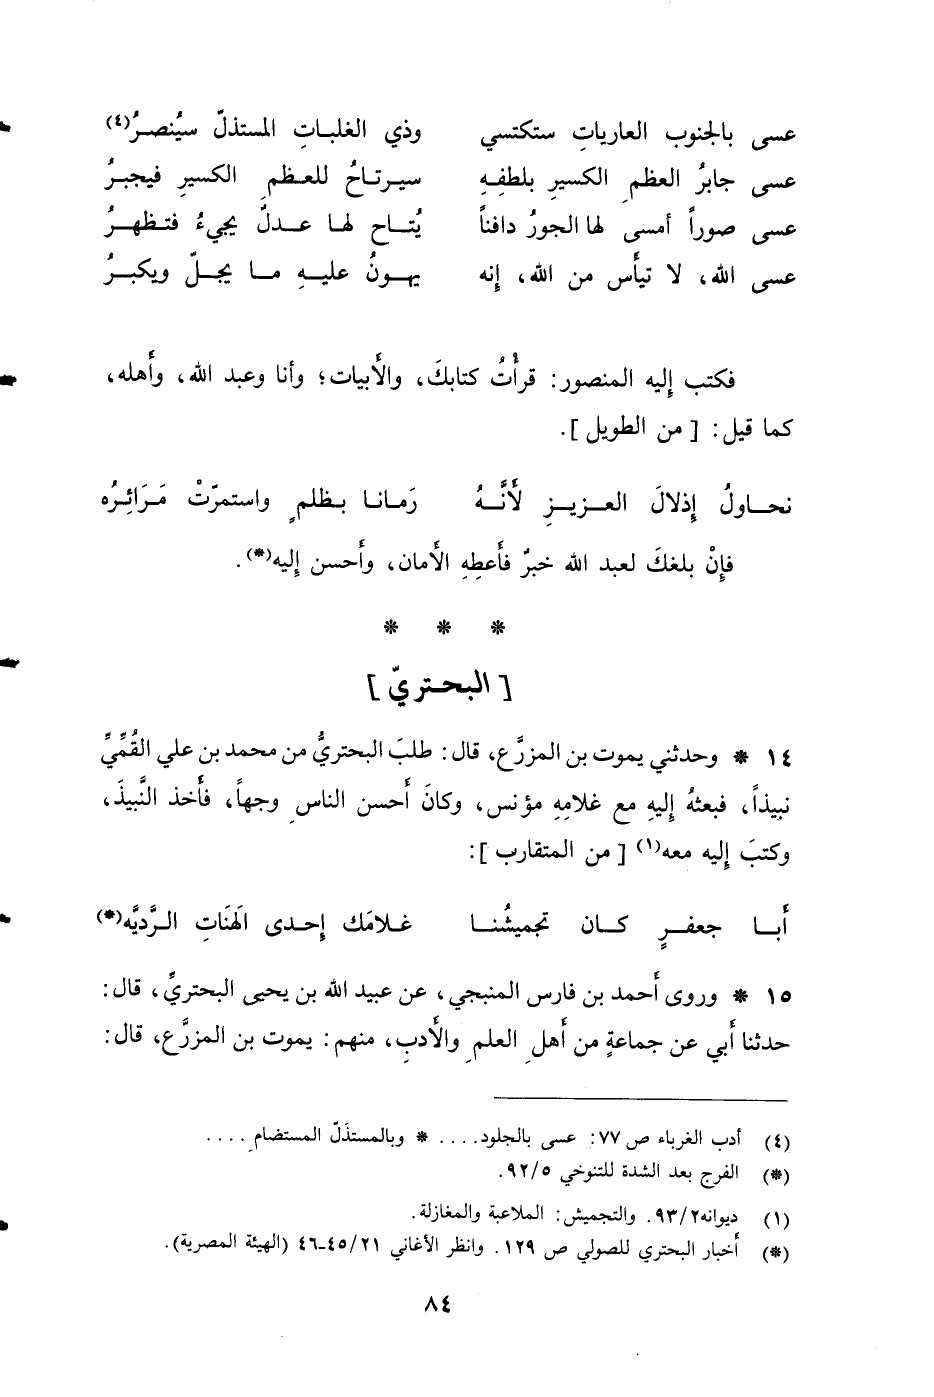 عسى بالجنوب العاريات ستكتسي وذي الغلبات المستذلّ سيُنصرُ(٤)
عسى جابرُ العظم الكسيرِ بلطفِهِ سيرتاحُ للعظمِ الكسيرِ فيجبرُ
عسى صوراً أمسى لها الجورُ دافناً يُتاح لها عدلٌ يجيءُ فتظهرُ
عسى الله، لا تيأس من الله، إنه يهونُ عليهِ ما يجلّ ويكبرُ
فكتب إليه المنصور: قرأْتُ كتابكَ، والأبيات؛ وأنا وعبد الله، وأهله،
كما قيل: [ من الطويل ].
نحاولُ إذلالَ العزيزِ لأَنَّهُ رَمانا بظلمٍ واستمرّتْ مَرَائِرُه
فإنْ بلغكَ لعبد الله خبرٌ فأَعطِهِ الأمان، وأَحسن إليه(*).
* * *
[ البحتريّ ]
١٤ * وحدثني يموت بن المزرَّع، قال: طلبَ البحتريُّ من محمد بن علي القُمِّيِّ
نبيذاً، فبعثهُ إليهِ مع غلامِهِ مؤنس، وكانَ أحسن الناسِ وجهاً، فأَخذ النَّبيذَ،
وكتبَ إليه معه(١) [ من المتقارب ]:
أَبا جعفرٍ كان تجميشُنا غلامَك إحدى الهَنَاتِ الرَّديَّه(*)
١٥ * وروى أحمد بن فارس المنبجي، عن عبيد الله بن يحيى البحتريِّ، قال:
حدثنا أَبي عن جماعةٍ من أَهلِ العلمِ والأَدبِ، منهم: يموت بن المزرَّع، قال:
(٤) أدب الغرباء ص ٧٧: عسى بالجلود.... * وبالمستذَلّ المستضامِ ....
(*) الفرج بعد الشدة للتنوخي ٩٢/٥.
(١) ديوانه ٩٣/٢. والتجميش: الملاعبة والمغازلة.
(*) أخبار البحتري للصولي ص ١٢٩. وانظر الأغاني ٤٥/٢١-٤٦ (الهيئة المصرية).
٨٤